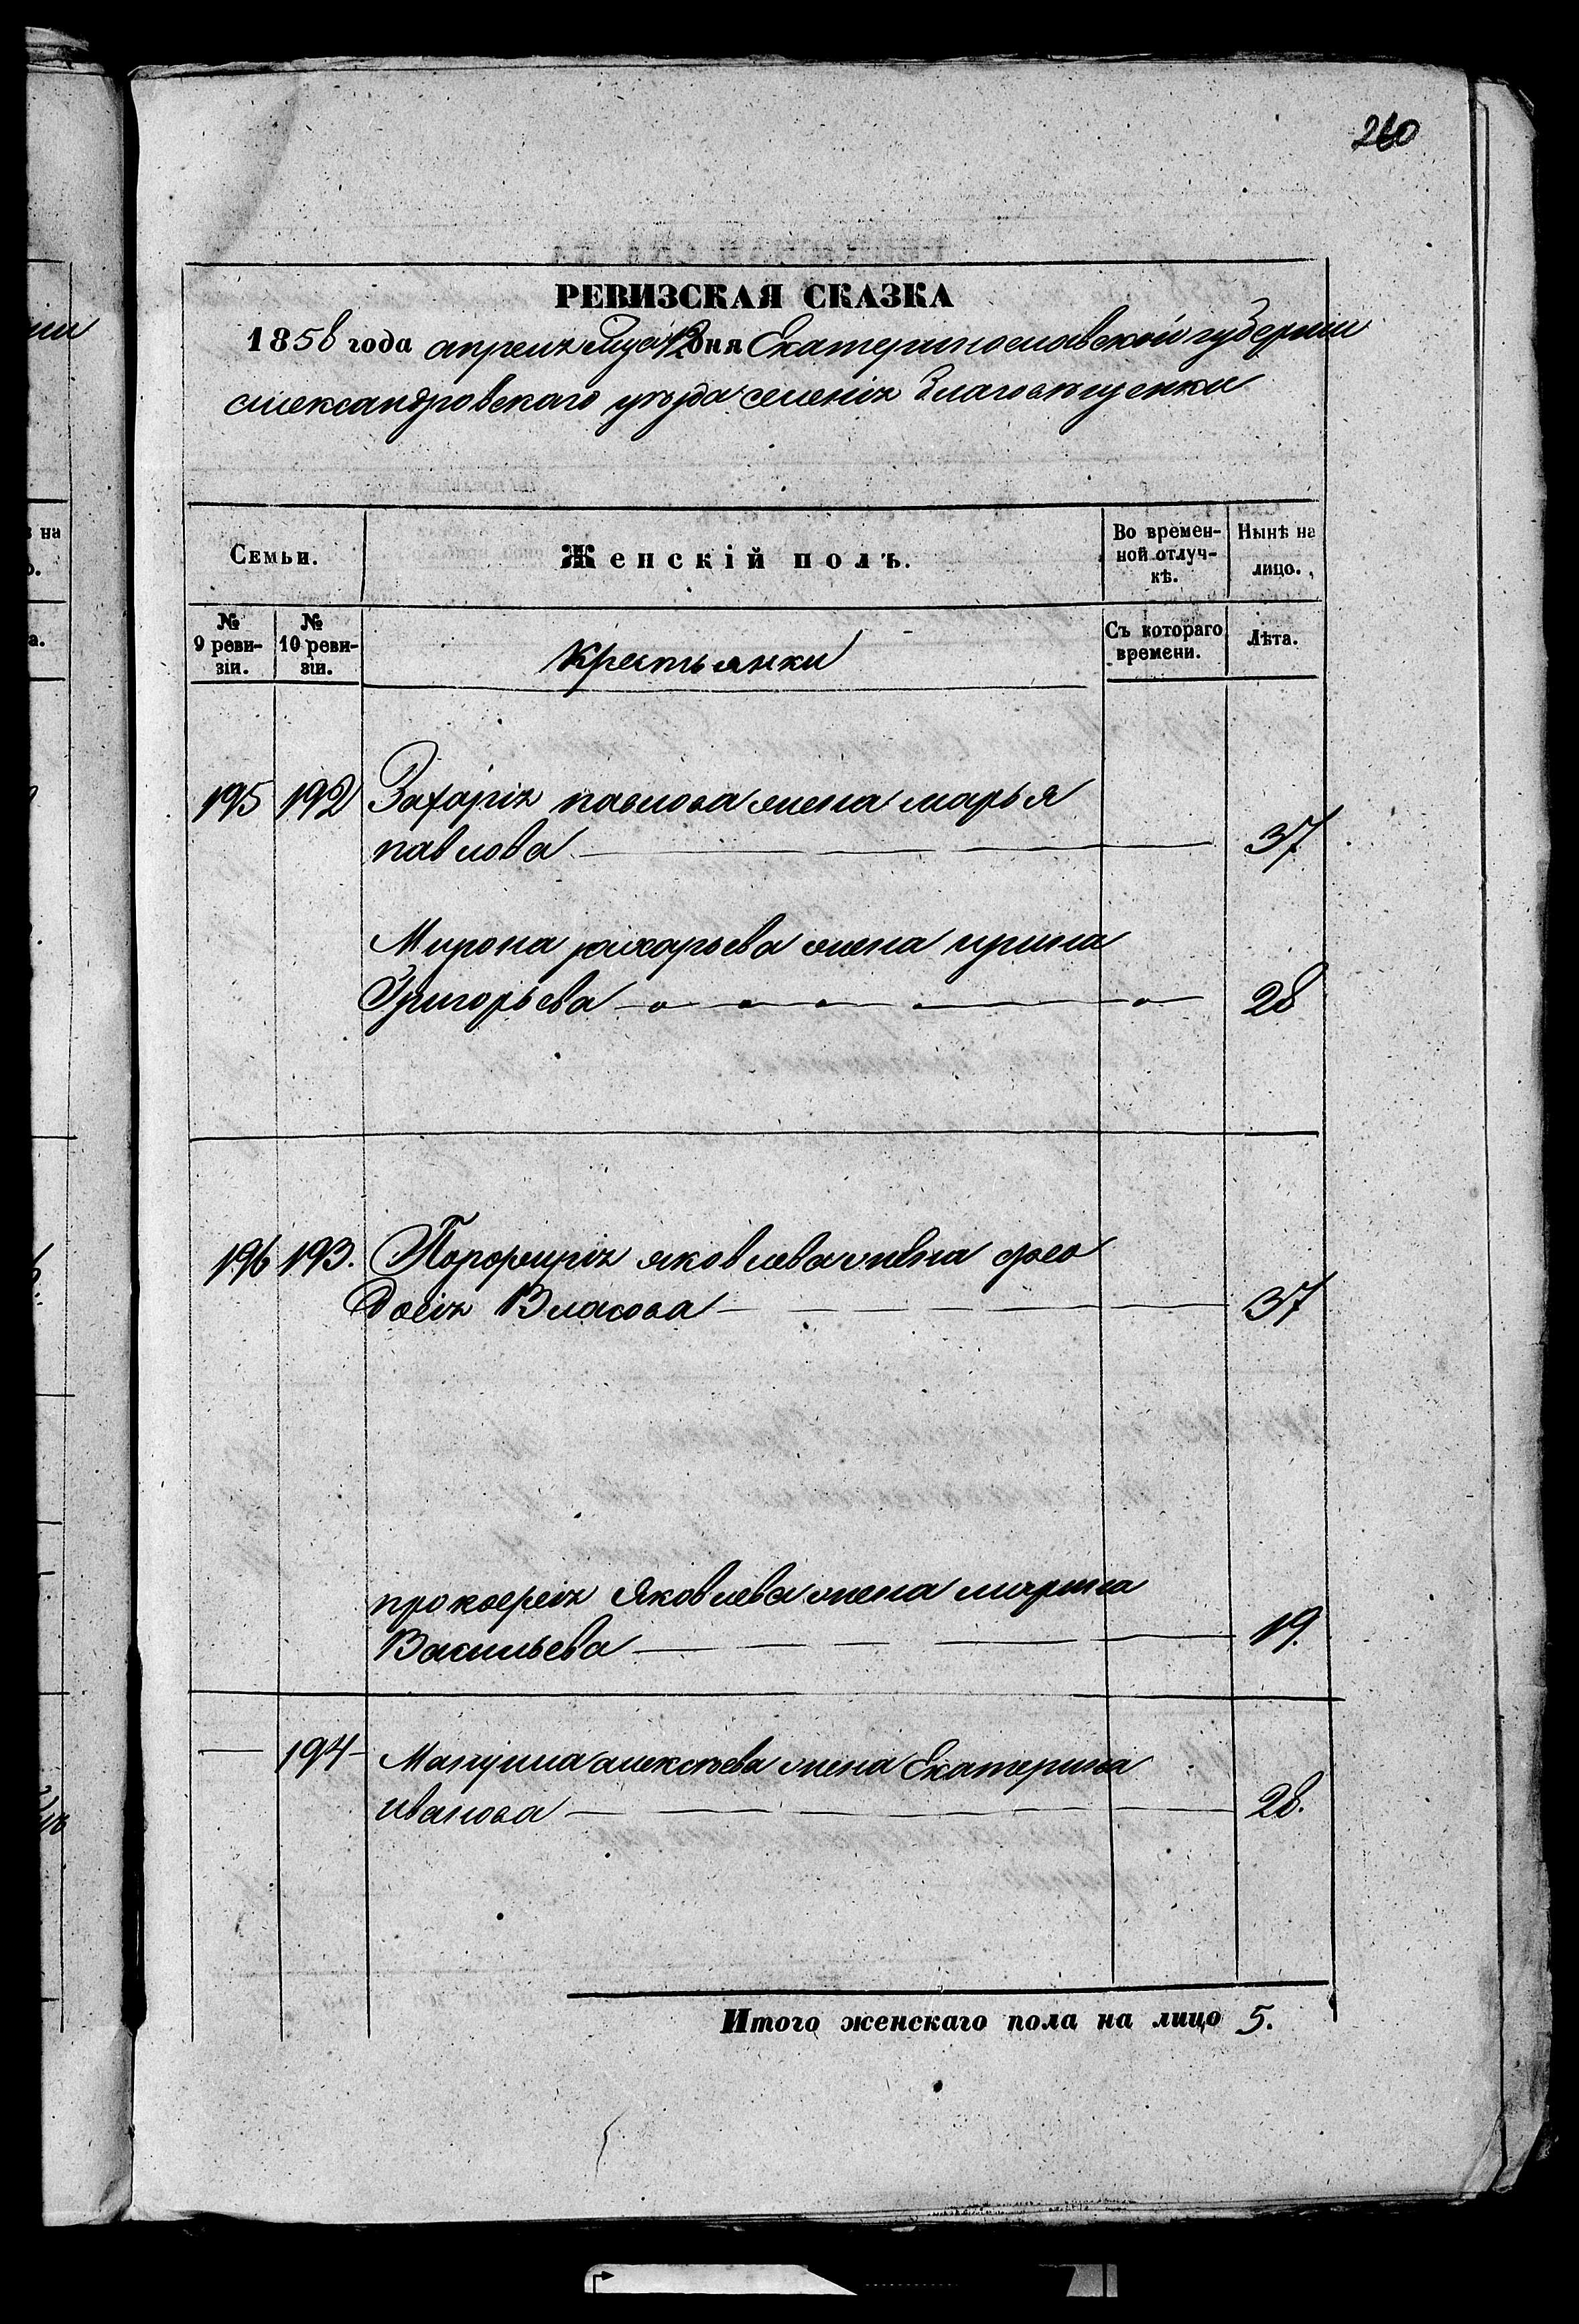 260
РЕВИЗСКАЯ СКАЗКА
1858 года апреля 12 дня Екатеринославской губернии
Александровскаго уѣзда селенія Благовѣщенки
Семьи.
Женскій полъ.
Во времен-
ной отлуч-
кѣ.
Нынѣ на
лицо.
№
9 реви-
зіи.
№
10 реви-
зіи.
Крестьянки
Съ котораго
времени.
Лѣта.
195 192 Захарія павлова жена марья
павлова 37
Мирона захарьева жена ирина
Григорьева 28
196 193. Порфирія яковлева жена фео
досія Власова 37
прокофія Яковлева жена марина
Васильева 19.
194 Мануила алексѣева жена Екатерина
иванова 28.
Итого женскаго пола на лицо 5.
на
а.